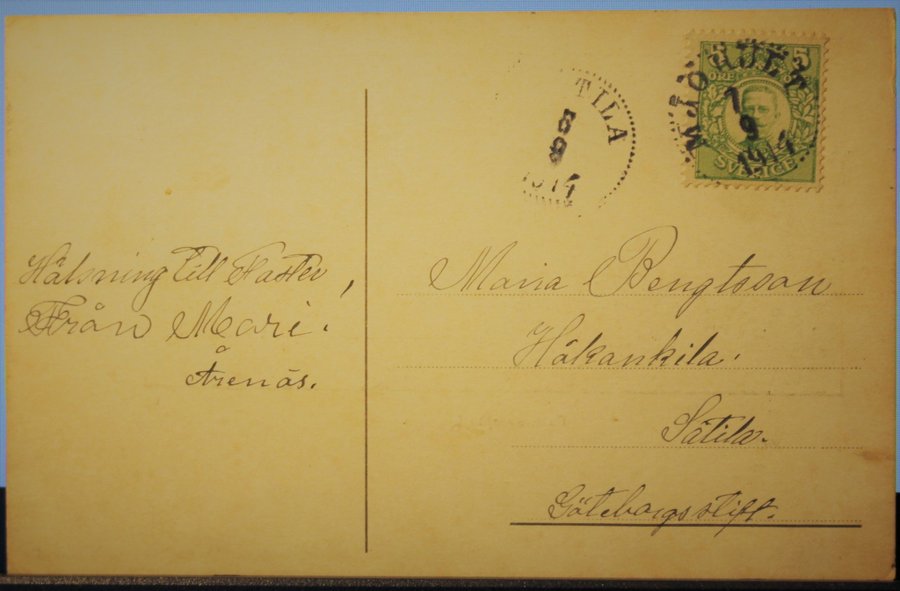 TILA
8
9
1914
5 5
ÖRE
SVERIGE
MJÖHULT
7
9
1914
Hälsning till Faster,
Från Mari.
Årenäs.
Maria Bengtsson
Håkankila.
Sätila.
Göteborgsstift.